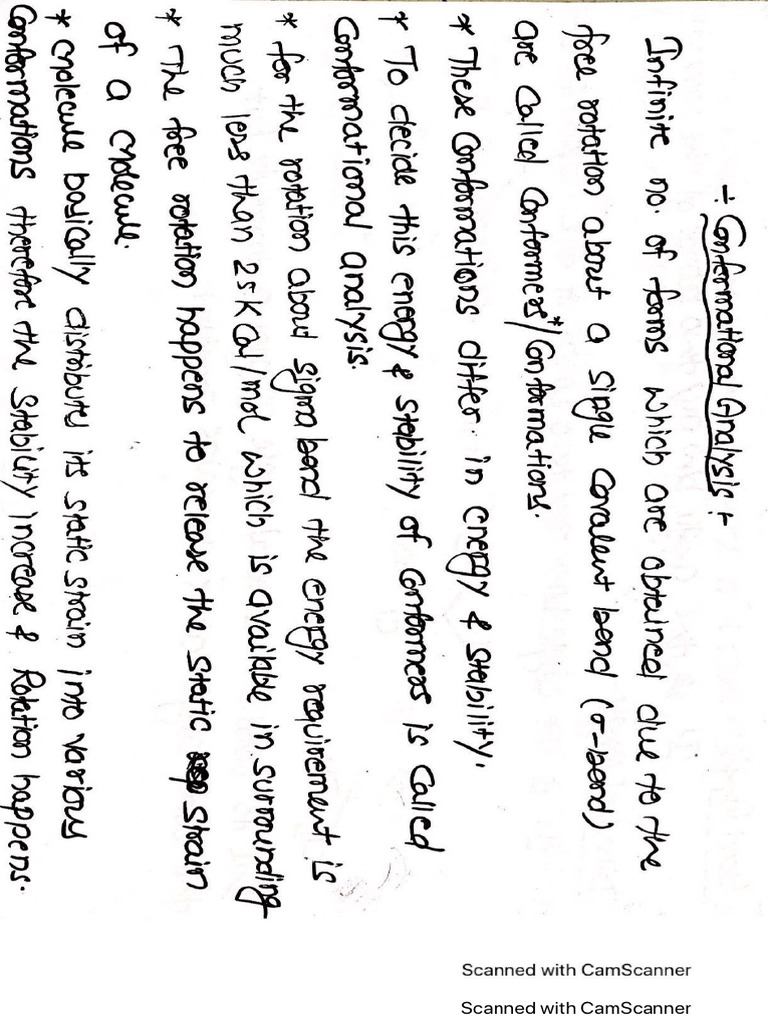 ÷ Conformational Analysis ÷
Infinite no. of forms which are obtained due to the
free rotation about a single covalent bond (σ-bond)
are called conformers*/conformations.
* These conformations differ in energy & stability.
* To decide this energy & stability of conformers is called
conformational analysis.
* for the rotation about sigma bond the energy requirement is
much less than 25 KCal/mol which is available in surrounding
* The free rotation happens to release the static strain
of a molecule.
* molecule basically distribute its static strain into various
conformations therefore the stability increase & Rotation happens.
Scanned with CamScanner
Scanned with CamScanner